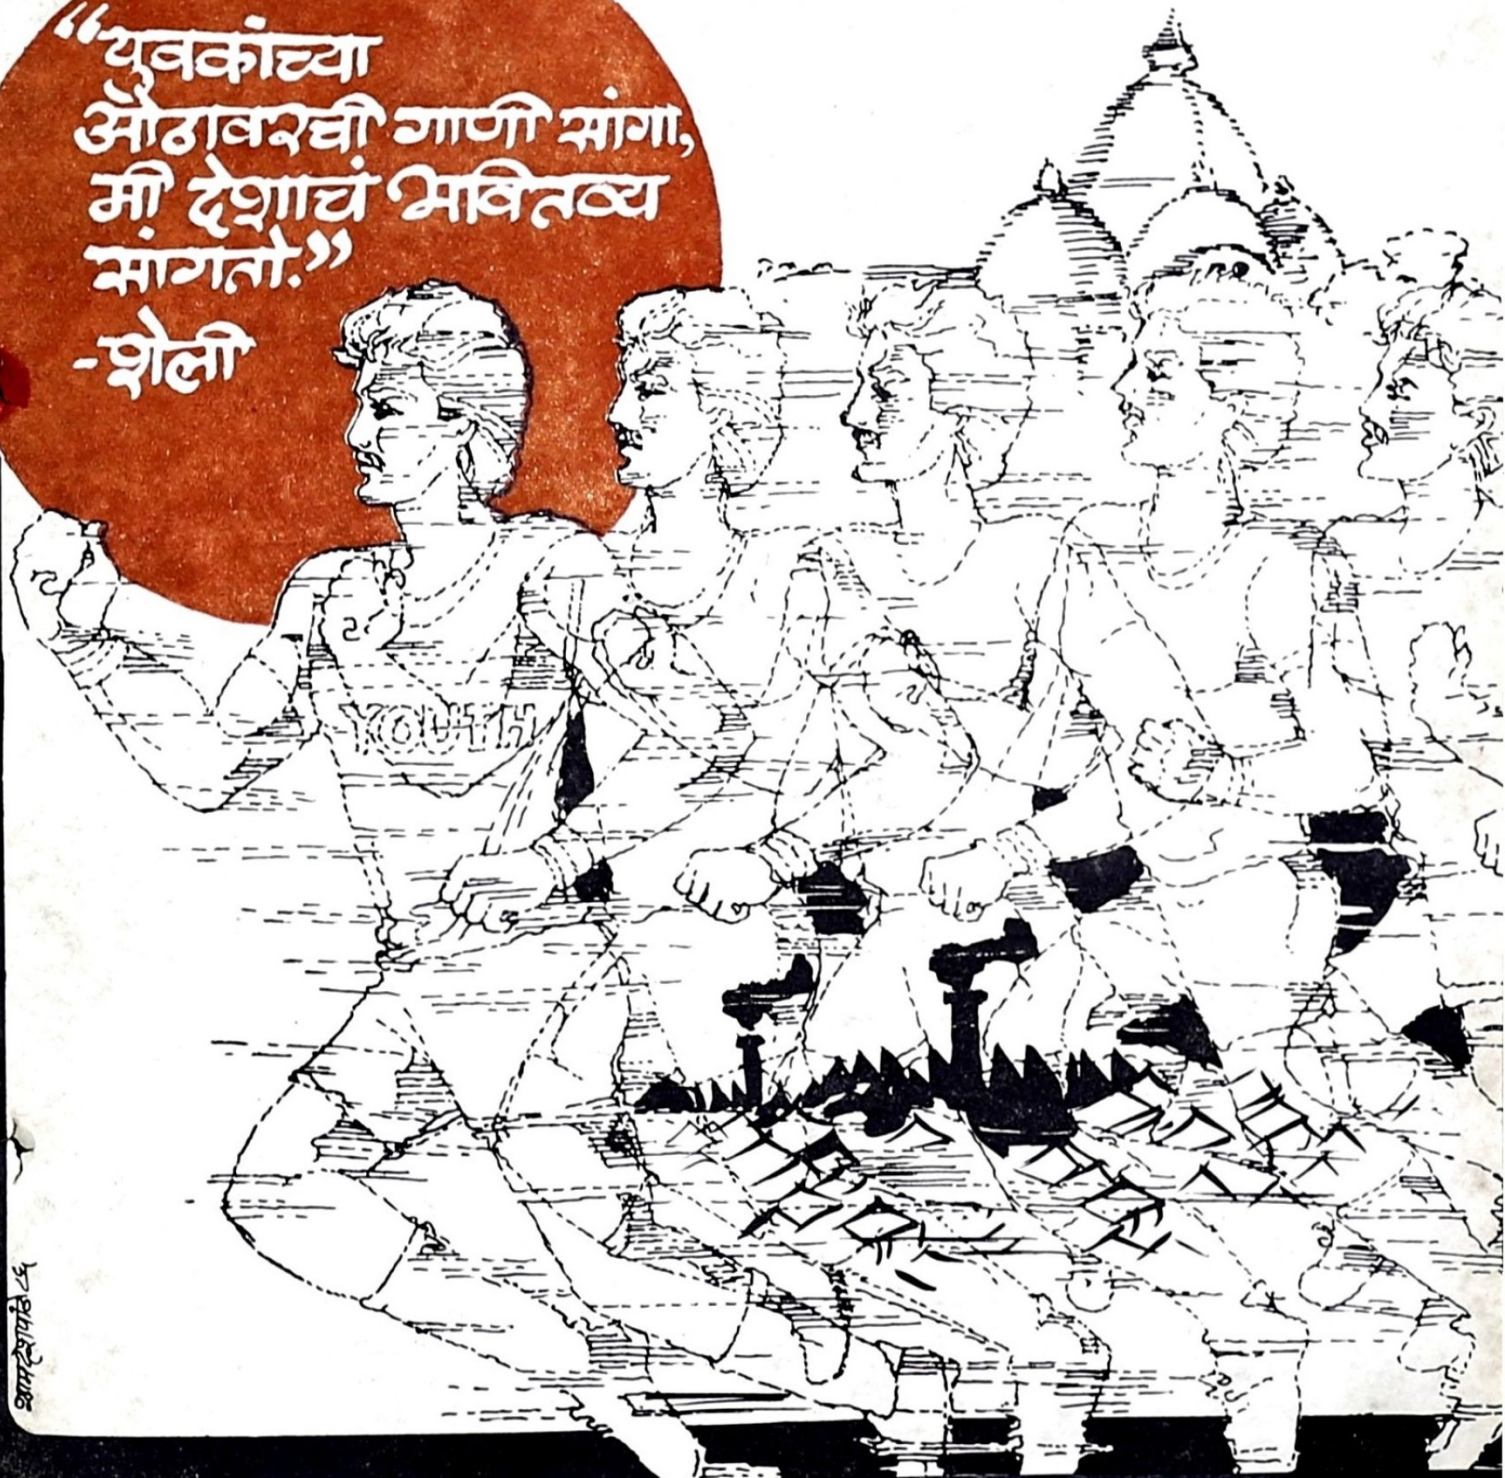 “युवकांच्या
ओठावरची गाणी सांगा,
मी देशाचं भवितव्य
सांगतो.”
-शेली
YOUTH